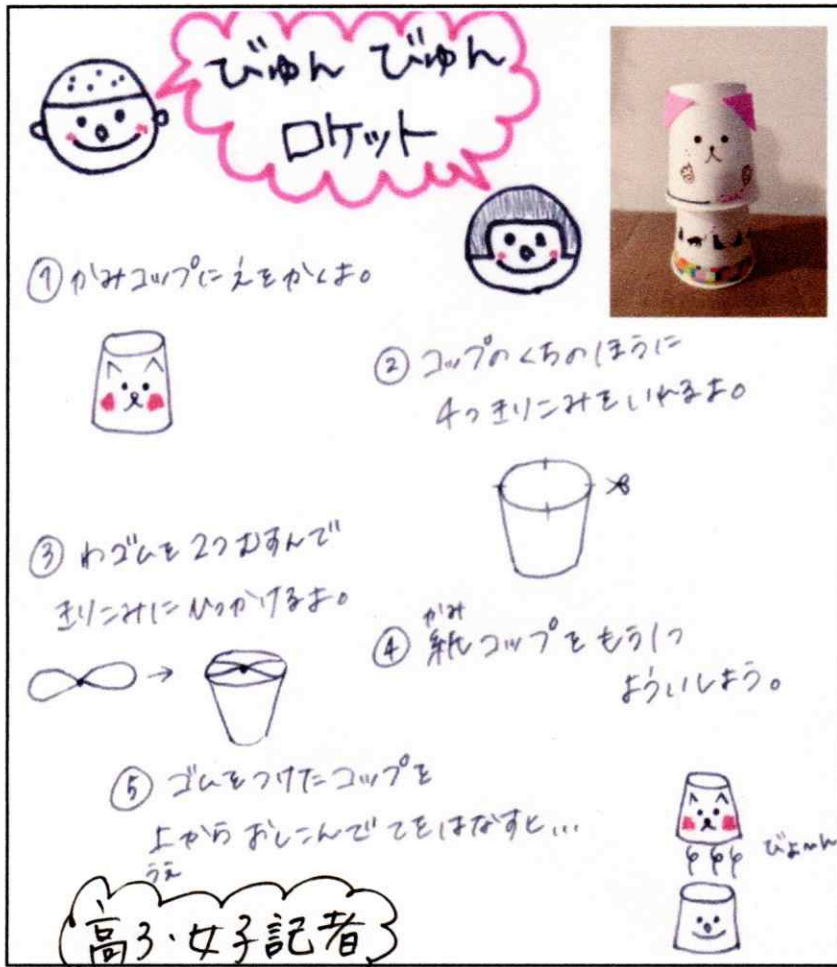 びゅん びゅん
ロケット
①かみコップにえをかくよ。
②コップのくちのほうに
4つきりこみをいれるよ。
③わゴムを2つむすんで
きりこみにひっかけるよ。
かみ
④紙コップをもう1つ
よういしよう。
⑤ゴムをつけたコップを
上からおしこんでてをはなすと…
うえ
びよ〜ん
高3・女子記者